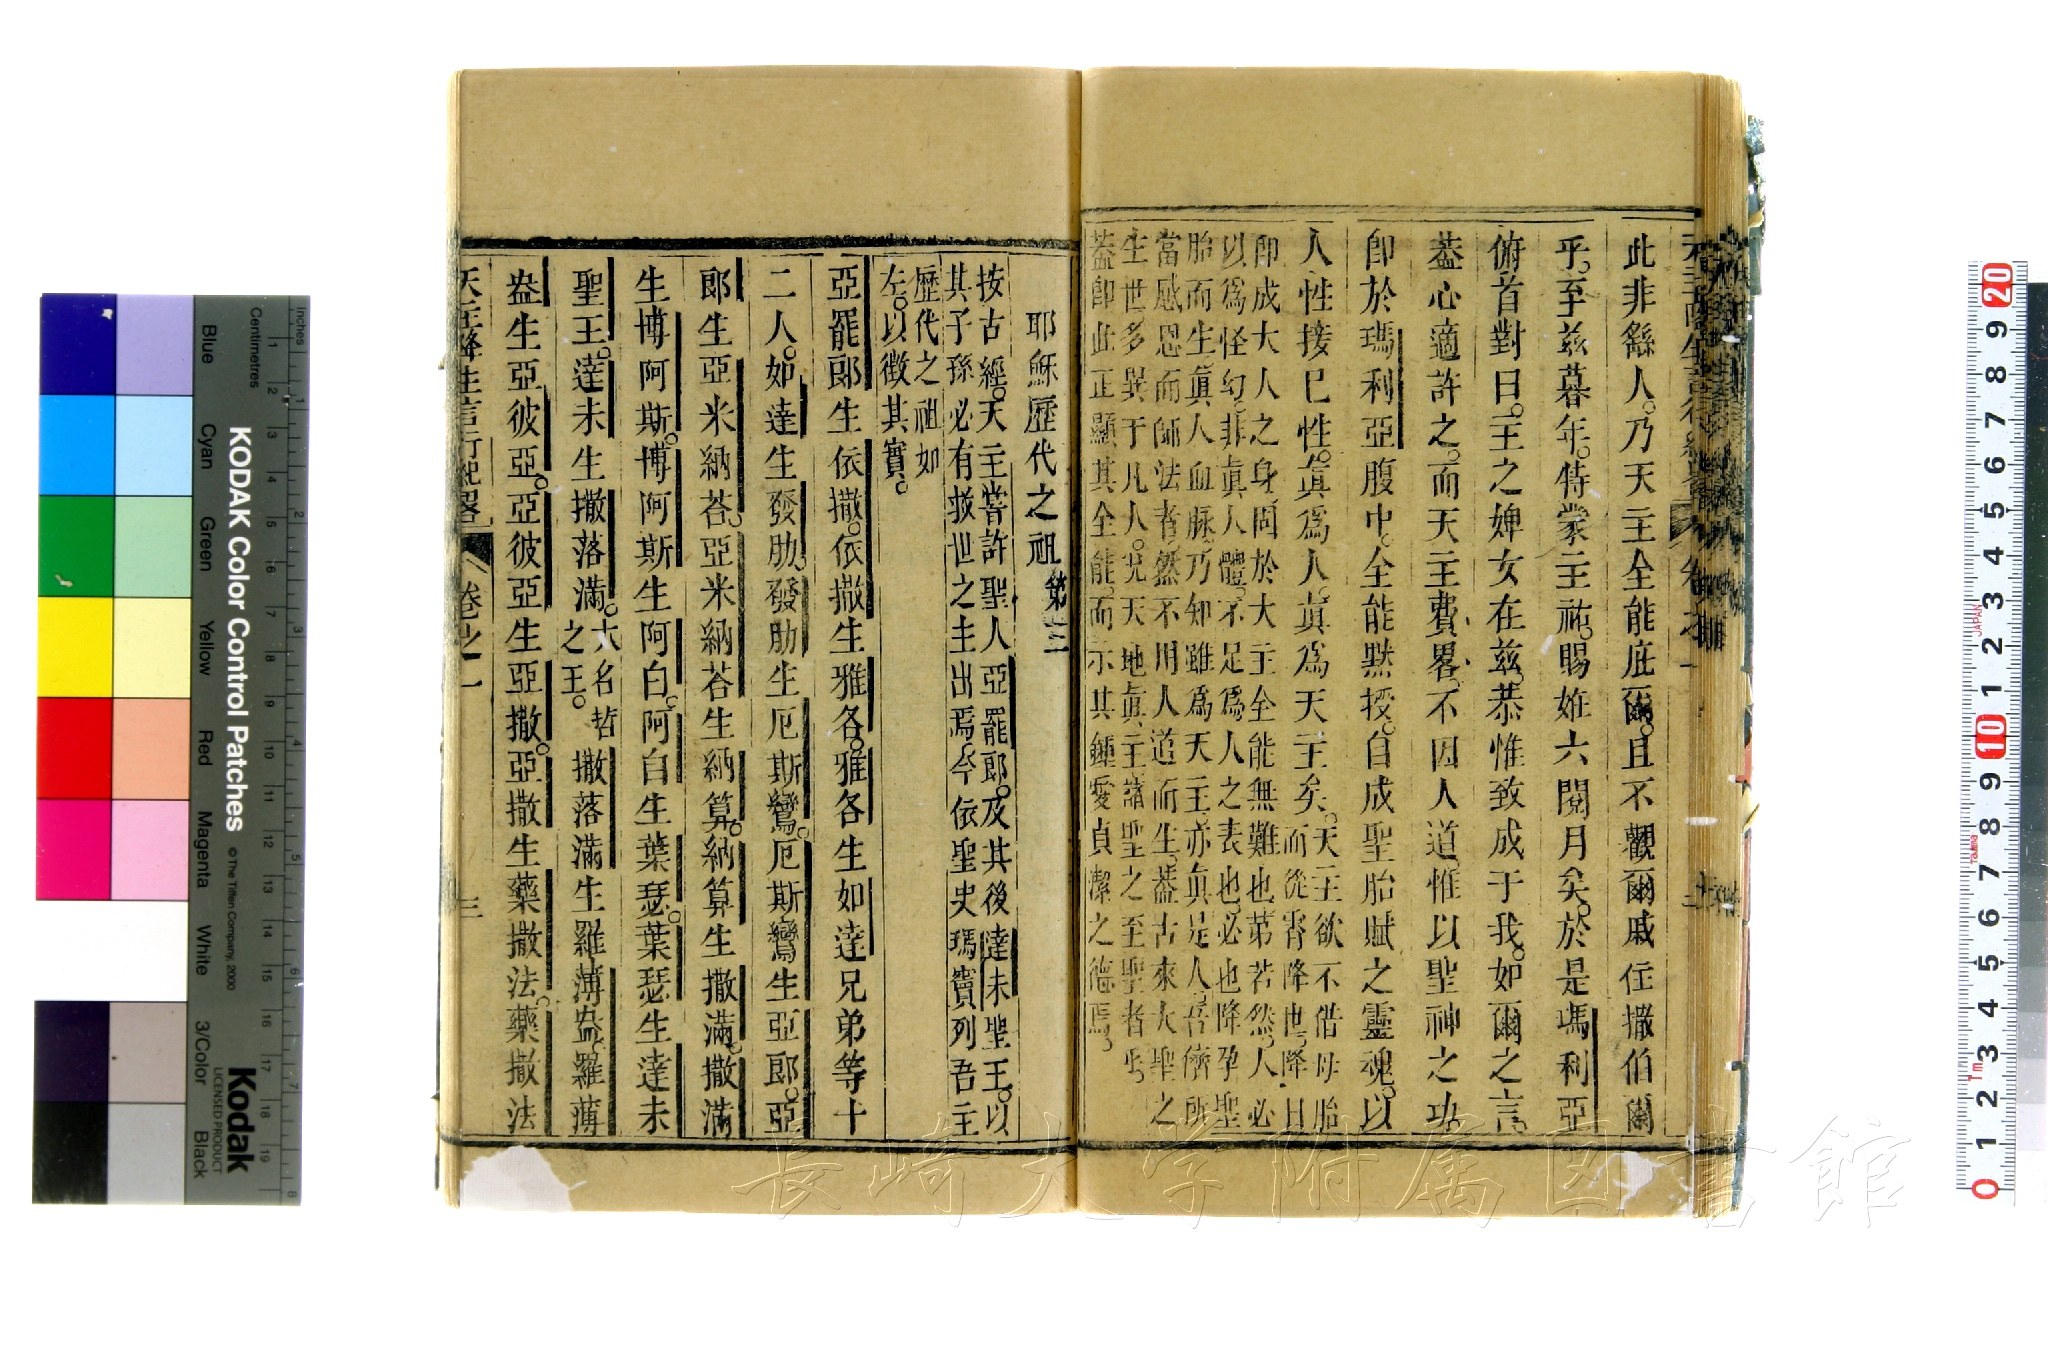 此非繇人。乃天主全能庇爾。且不觀爾戚任撒伯爾
乎。至茲暮年。特蒙主祐。賜姙六閱月矣。於是瑪利亞
俯首對曰。主之婢女在茲。恭惟致成于我。如爾之言。
葢心適許之。而天主費畧。不因人道。惟以聖神之功。
卽於瑪利亞腹中。全能默授。自成聖胎賦之靈魂。以
人性接巳性。眞爲人眞爲天主矣。
天主欲不偕母胎
而從霄降世。降日
卽成大人之身。固於大主全能無難也。第若然。人必
以爲怪幻。非眞人體。不足爲人之表也。必也降孕聖
胎而生。眞人血脉。乃知雖爲天主。亦眞是人。吾儕所
當感恩而師法者。然不用人道而生。葢古來大聖之
生世多異于凡人。況天地眞主。諸聖之至聖者乎。
葢卽此正顯其全能。而示其鍾愛貞潔之德焉。
耶穌歷代之祖 第三
按古經。天主嘗許聖人亞罷郎。及其後達未聖王。以
其子孫必有救世之主出焉。今依聖史瑪竇列吾主
歷代之祖如
左。以徵其實。
亞罷郎生依撒。依撒生雅各。雅各生如達兄弟等十
二人。如達生發肋。發肋生厄斯鸞。厄斯鸞生亞郎。亞
郎生亞米納荅。亞米納荅生納算。納算生撒滿。撒滿
生博阿斯。博阿斯生阿白。阿白生葉瑟。葉瑟生達未
聖王。達未生撒落滿。
大名哲
之王。
撒落滿生羅薄盎。羅薄
盎生亞彼亞。亞彼亞生亞撒。亞撒生藥撒法。藥撒法
天主降生言行紀畧
卷之一
三
KODAK Color Control Patches
© The Tiffen Company, 2000
Kodak
LICENSED PRODUCT
Inches
Centimetres
Blue
Cyan
Green
Yellow
Red
Magenta
White
3/Color
Black
JAPAN
長崎大学附属図書館